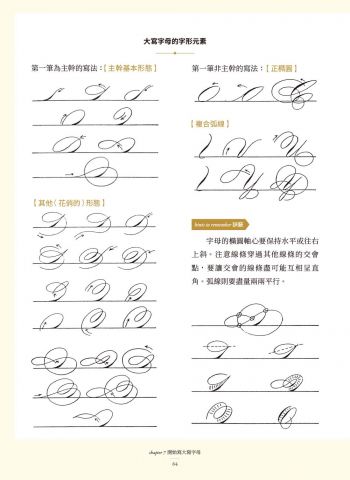 大寫字母的字形元素
第一筆為主幹的寫法：【主幹基本形態】
【其他（花俏的）形態】
第一筆非主幹的寫法：【正橢圓】
【複合弧線】
hints to remember 訣竅
字母的橢圓軸心要保持水平或往右
上斜。注意線條穿過其他線條的交會
點，要讓交會的線條盡可能互相呈直
角。弧線則要盡量兩兩平行。
chapter 7 開始寫大寫字母
64